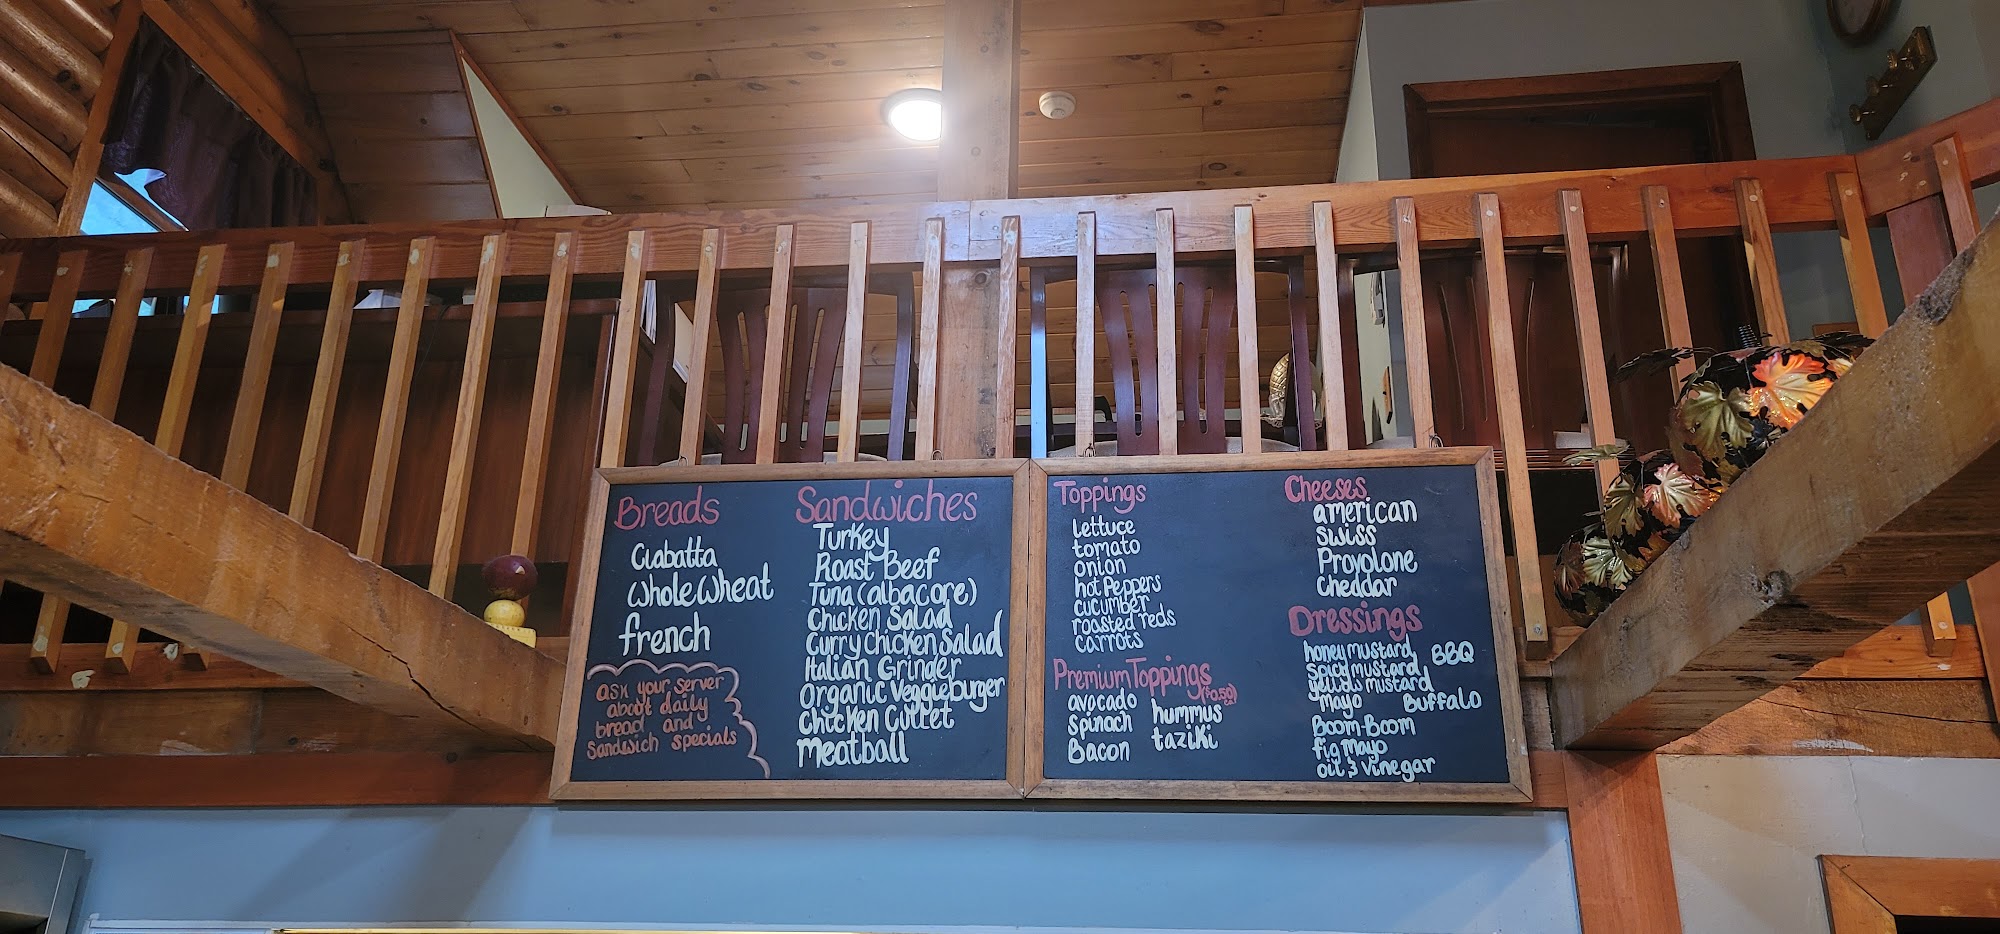 Breads
Ciabatta
Whole Wheat
french
ask your server
about daily
bread and
Sandwich specials
Sandwiches
Turkey
Roast Beef
Tuna (albacore)
Chicken Salad
Curry Chicken Salad
Italian Grinder
Organic Veggieburger
Chicken Cutlet
Meatball
Toppings
lettuce
tomato
onion
hot Peppers
cucumber
roasted reds
carrots
Premium Toppings
($0.50)
ea
avocado
spinach
Bacon
hummus
taziki
Cheeses
american
swiss
Provolone
cheddar
Dressings
honey mustard
spicy mustard
yellow mustard
mayo
BBQ
Buffalo
Boom-Boom
fig mayo
oil & vinegar